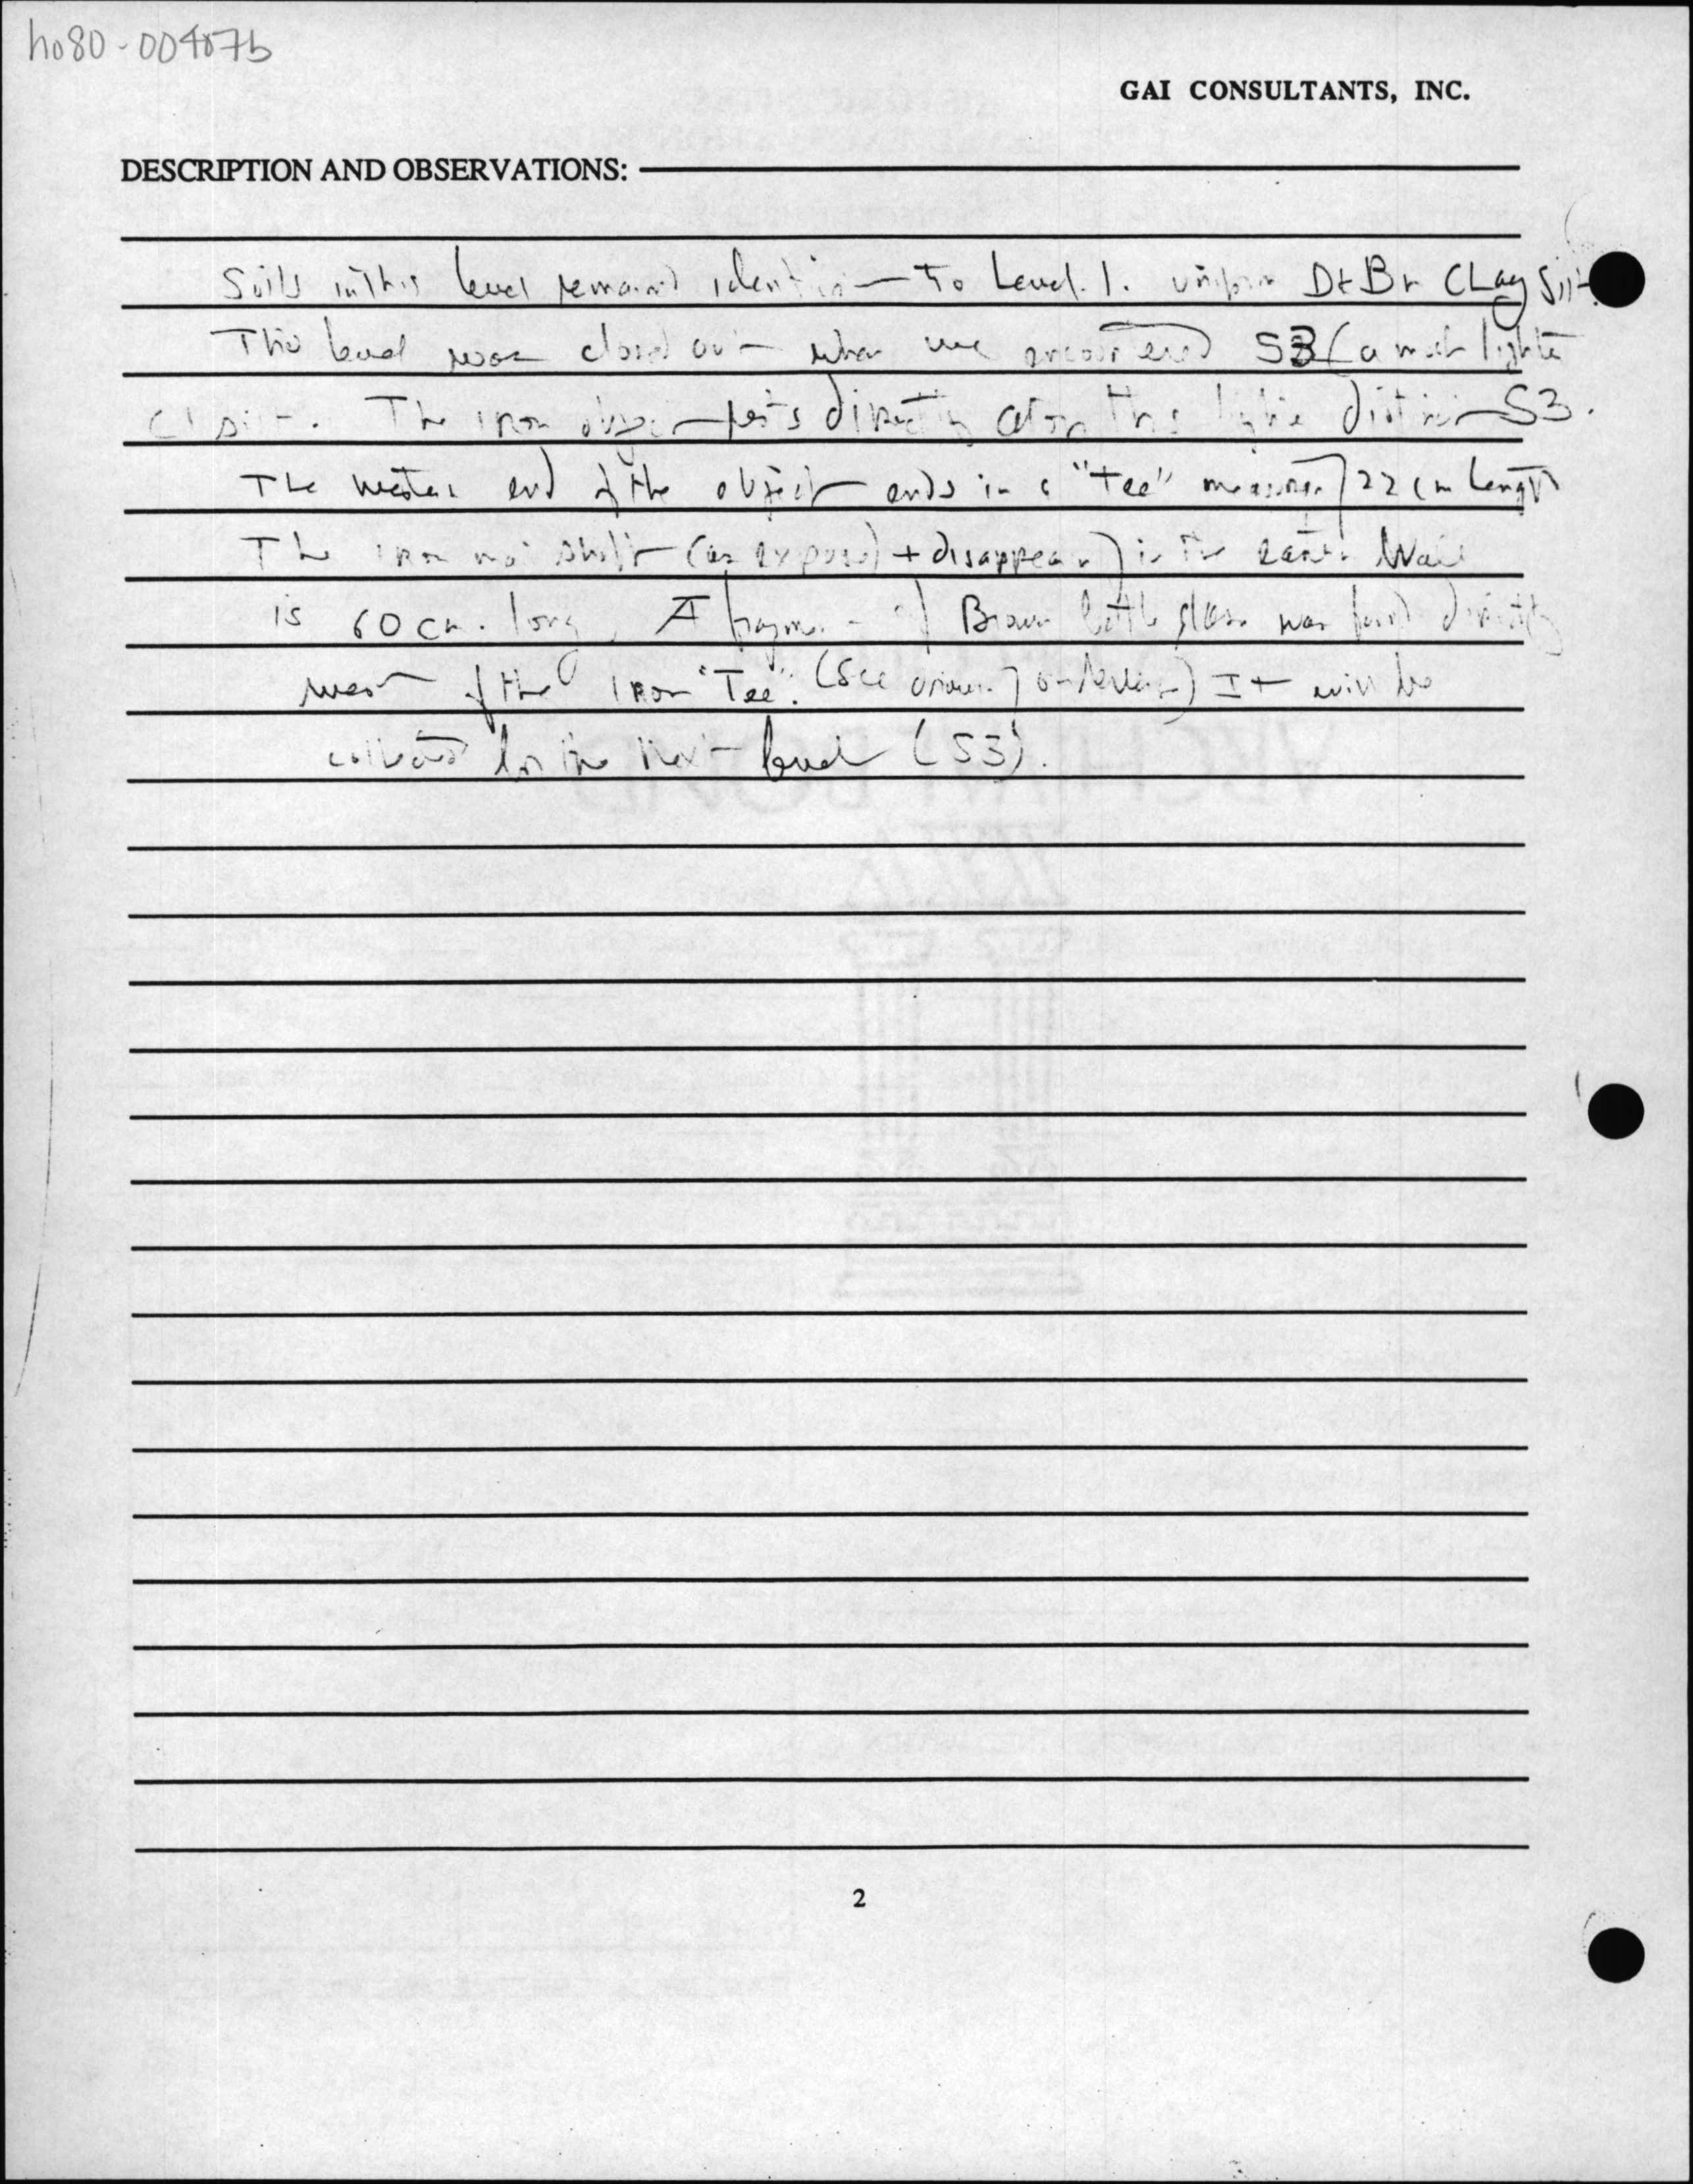 ho80-00407b
GAI CONSULTANTS, INC.
DESCRIPTION AND OBSERVATIONS:
Soils in this level remained to Level 1. uniform Dk Br Clay Silt.
This level was closed out when we encountered S3 (a much lighter
The iron object rests directly atop this S3.
The western end of the object ends in a "Tee" measuring 22 cm length
The iron shaft (as exposed) + disappearing in the eastern wall
is 60 cm. long. A fragment of Brown bottle glass was found directly
west of the iron "Tee". (See drawing on ) It will be
collected for the next level (S3).
2